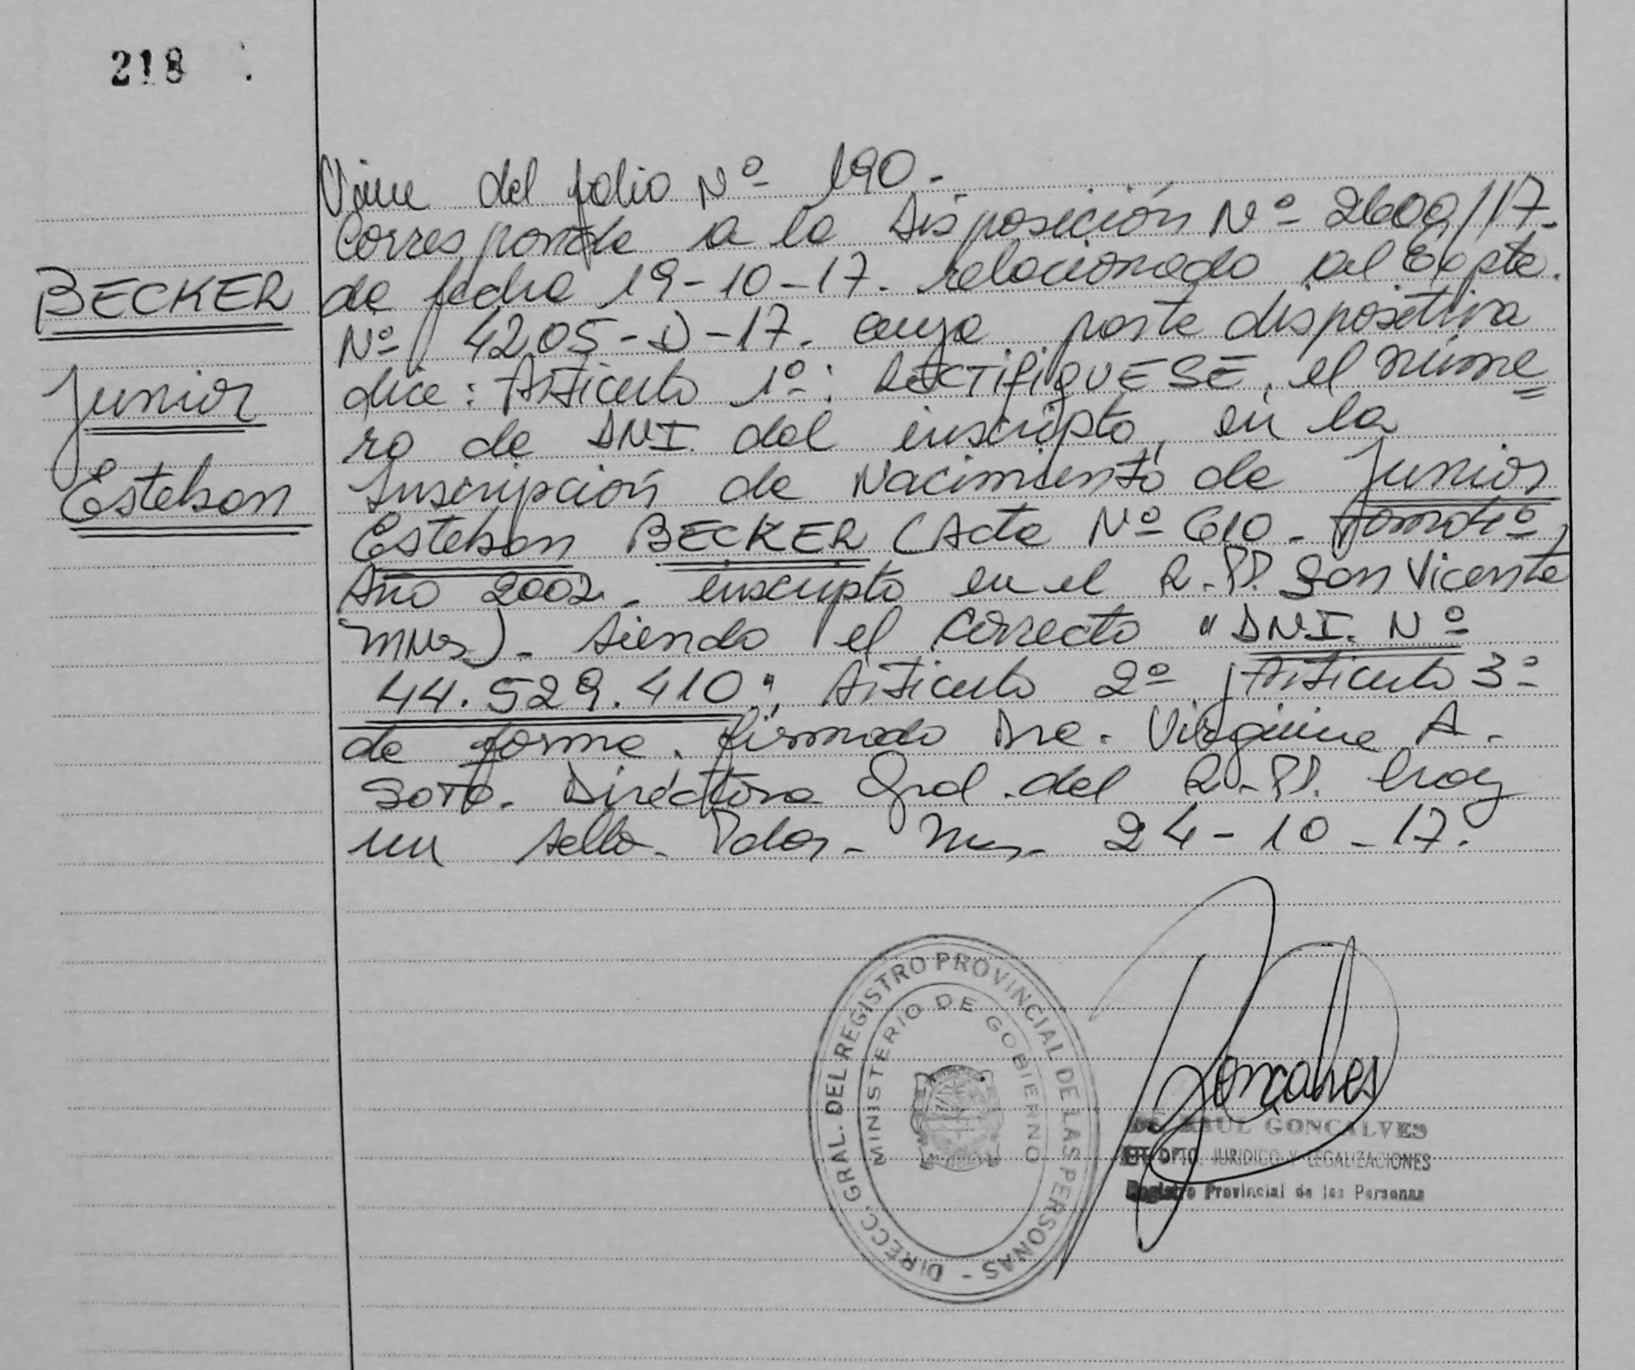 218
BECKER
Junior
Esteban
Viene del folio Nº 190.-
Corresponde a la Disposición Nº 2609/17.
de fecha 19-10-17. relacionado al Expte.
Nº 4205-D-17. cuya parte dispositiva
dice: Artículo 1º: RECTIFIQUESE, el núme
ro de DNI. del inscripto, en la
Inscripción de Nacimiento de Junior
Esteban BECKER (Acta Nº 610. Tomo
Año 2002. inscripto en el R.PP. San Vicente
Mnes). Siendo el correcto "DNI. Nº
44.529.410". Artículo 2º y Artículo 3º
de forma. firmado Dra. Virginia A.
Soto. Directora Gral. del R.PP. hay
un sello. Pdas. Mns. 24-10-17.
DIRECC. GRAL. DEL REGISTRO PROVINCIAL DE LAS PERSONAS -
MINISTERIO DE GOBIERNO
Gonçalves
RAUL GONCALVES
DPTO. JURIDICO Y LEGALIZACIONES
Registro Provincial de las Personas